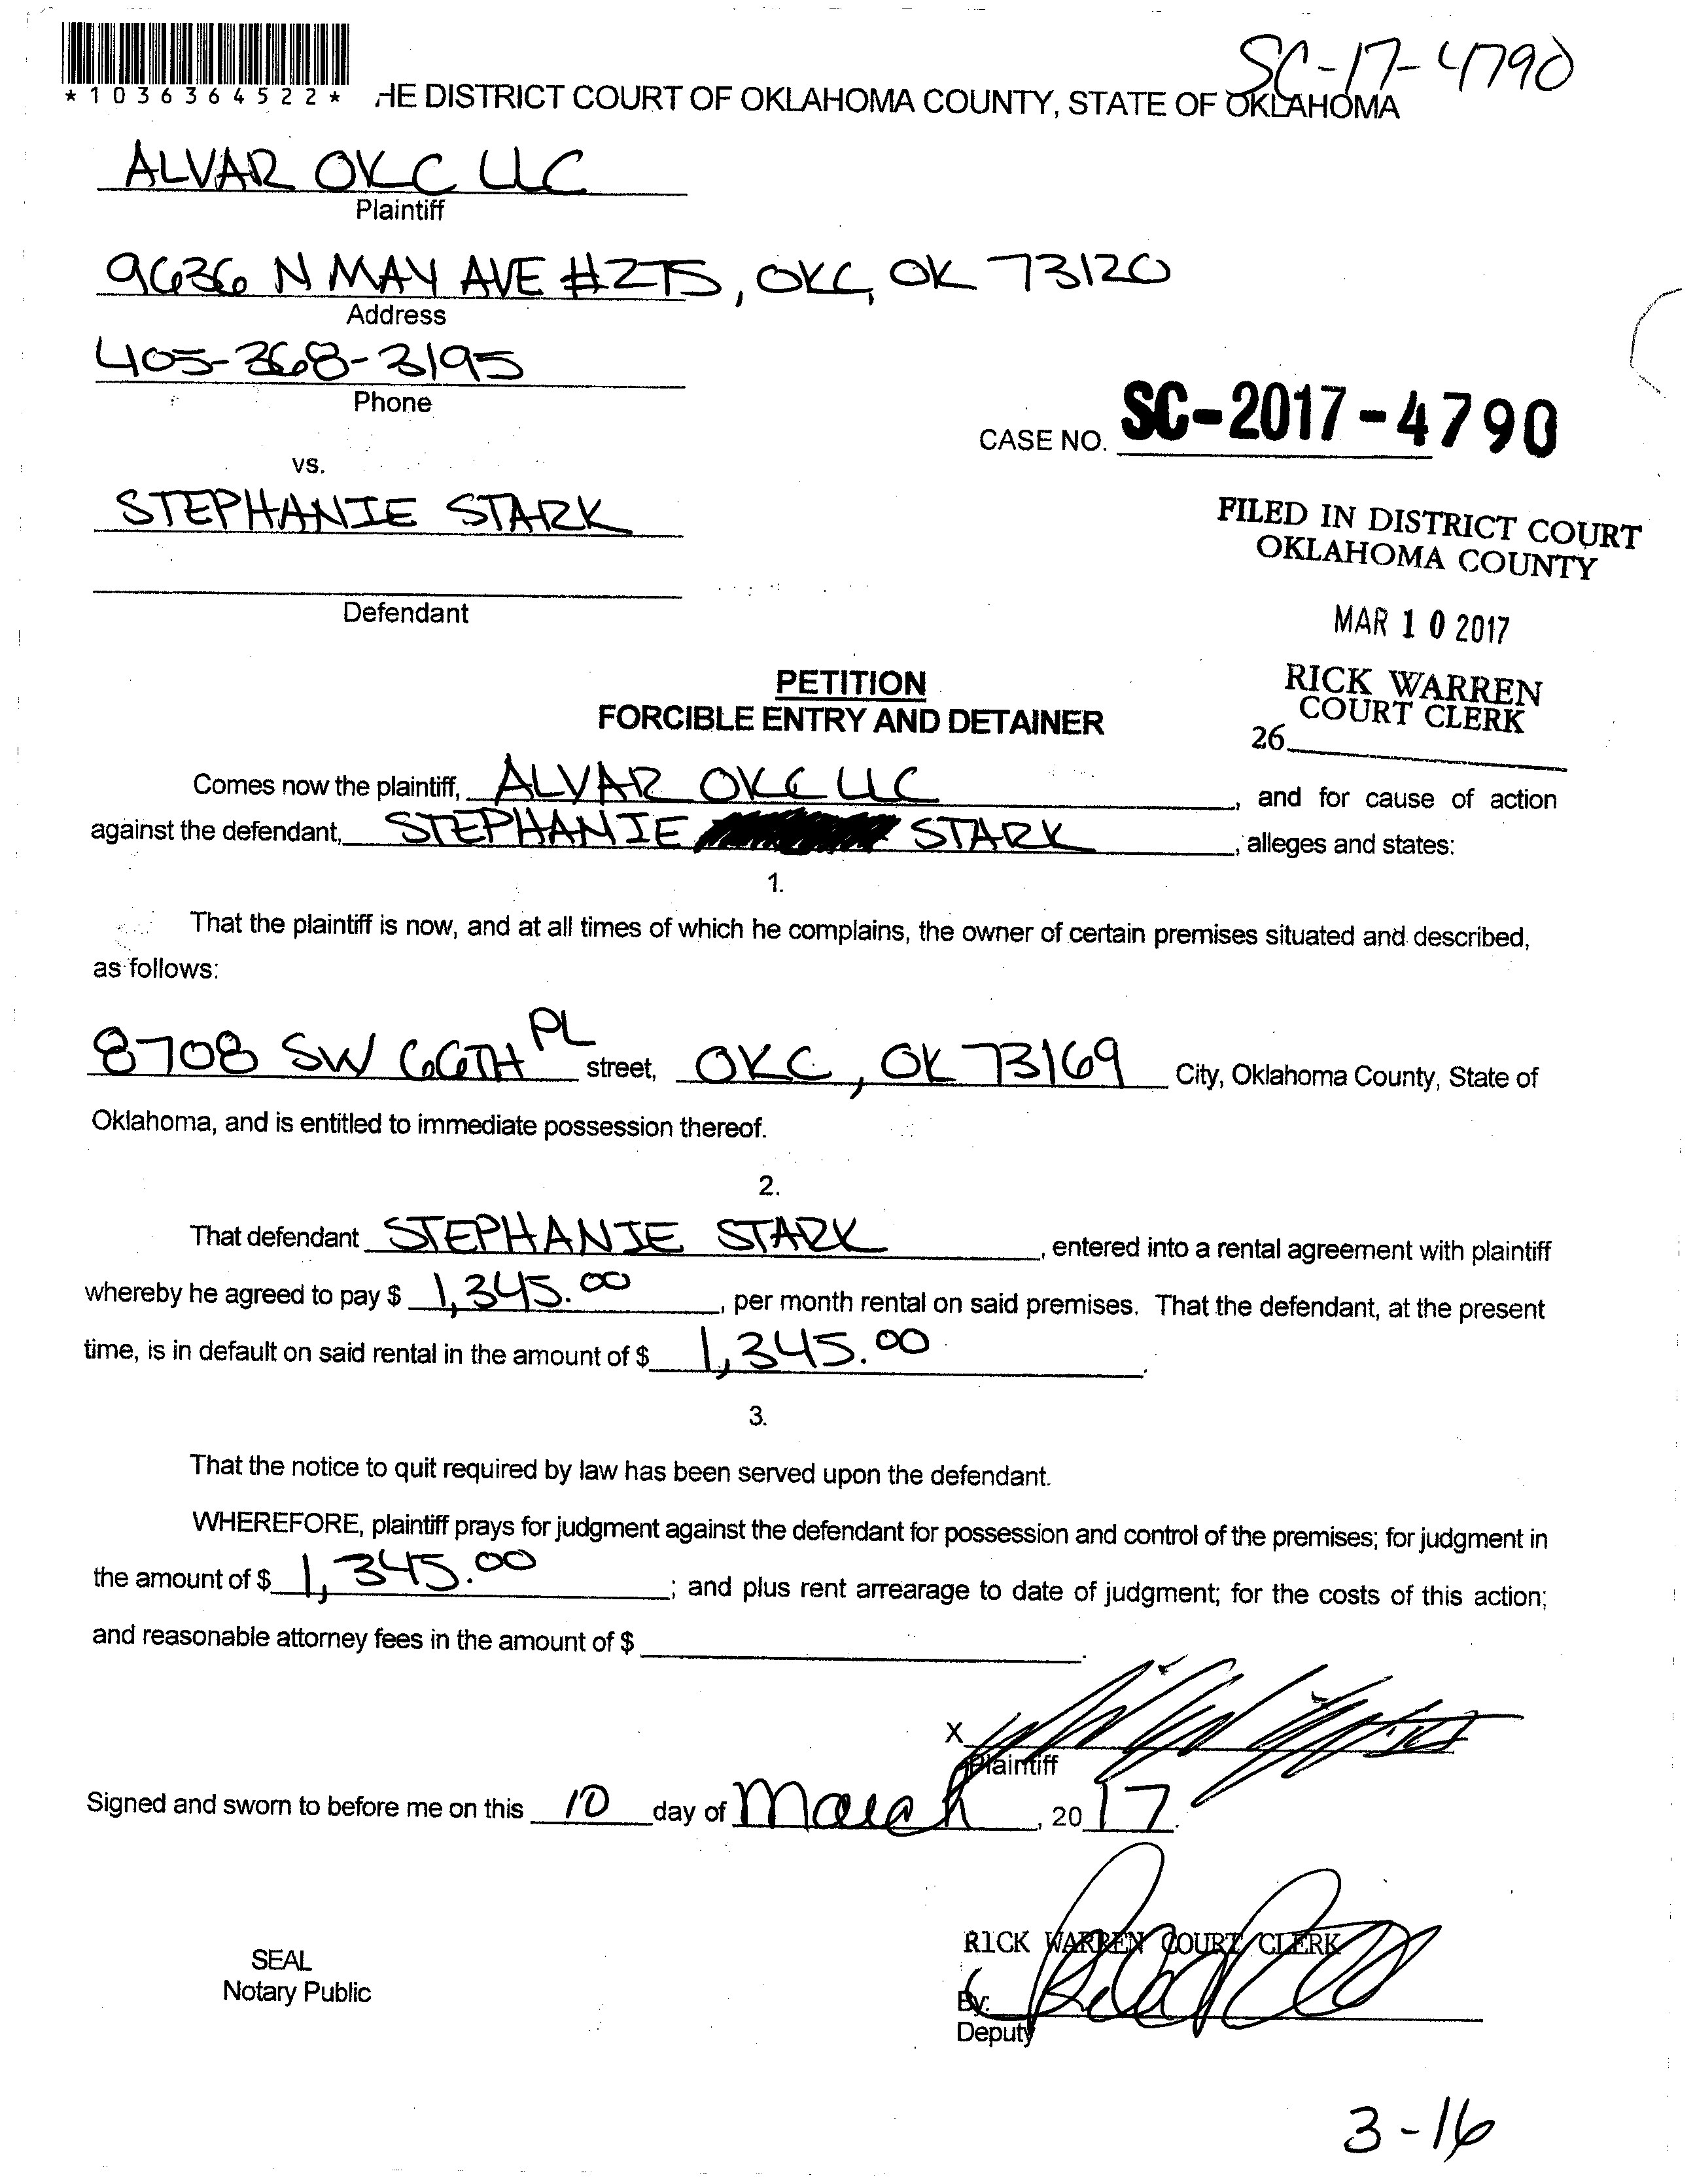 SC-17-4790
*1036364522*
HE DISTRICT COURT OF OKLAHOMA COUNTY, STATE OF OKLAHOMA
ALVAR OKC LLC
Plaintiff
9636 N MAY AVE #275, OKC, OK 73120
Address
405-368-3195
Phone
CASE NO. SC-2017-4790
vs.
STEPHANIE STARK
FILED IN DISTRICT COURT
OKLAHOMA COUNTY
Defendant
MAR 10 2017
RICK WARREN
COURT CLERK
26
PETITION
FORCIBLE ENTRY AND DETAINER
Comes now the plaintiff, ALVAR OKC LLC, and for cause of action
against the defendant, STEPHANIE STARK, alleges and states:
1.
That the plaintiff is now, and at all times of which he complains, the owner of certain premises situated and described,
as follows:
8708 SW 66TH PL street, OKC, OK 73169 City, Oklahoma County, State of
Oklahoma, and is entitled to immediate possession thereof.
2.
That defendant STEPHANIE STARK, entered into a rental agreement with plaintiff
whereby he agreed to pay $ 1,345.00, per month rental on said premises. That the defendant, at the present
time, is in default on said rental in the amount of $ 1,345.00.
3.
That the notice to quit required by law has been served upon the defendant.
WHEREFORE, plaintiff prays for judgment against the defendant for possession and control of the premises; for judgment in
the amount of $ 1,345.00; and plus rent arrearage to date of judgment; for the costs of this action;
and reasonable attorney fees in the amount of $
X
Plaintiff
Signed and sworn to before me on this 10 day of March, 2017.
RICK WARREN COURT CLERK
SEAL
Notary Public
By:
Deputy
3-16